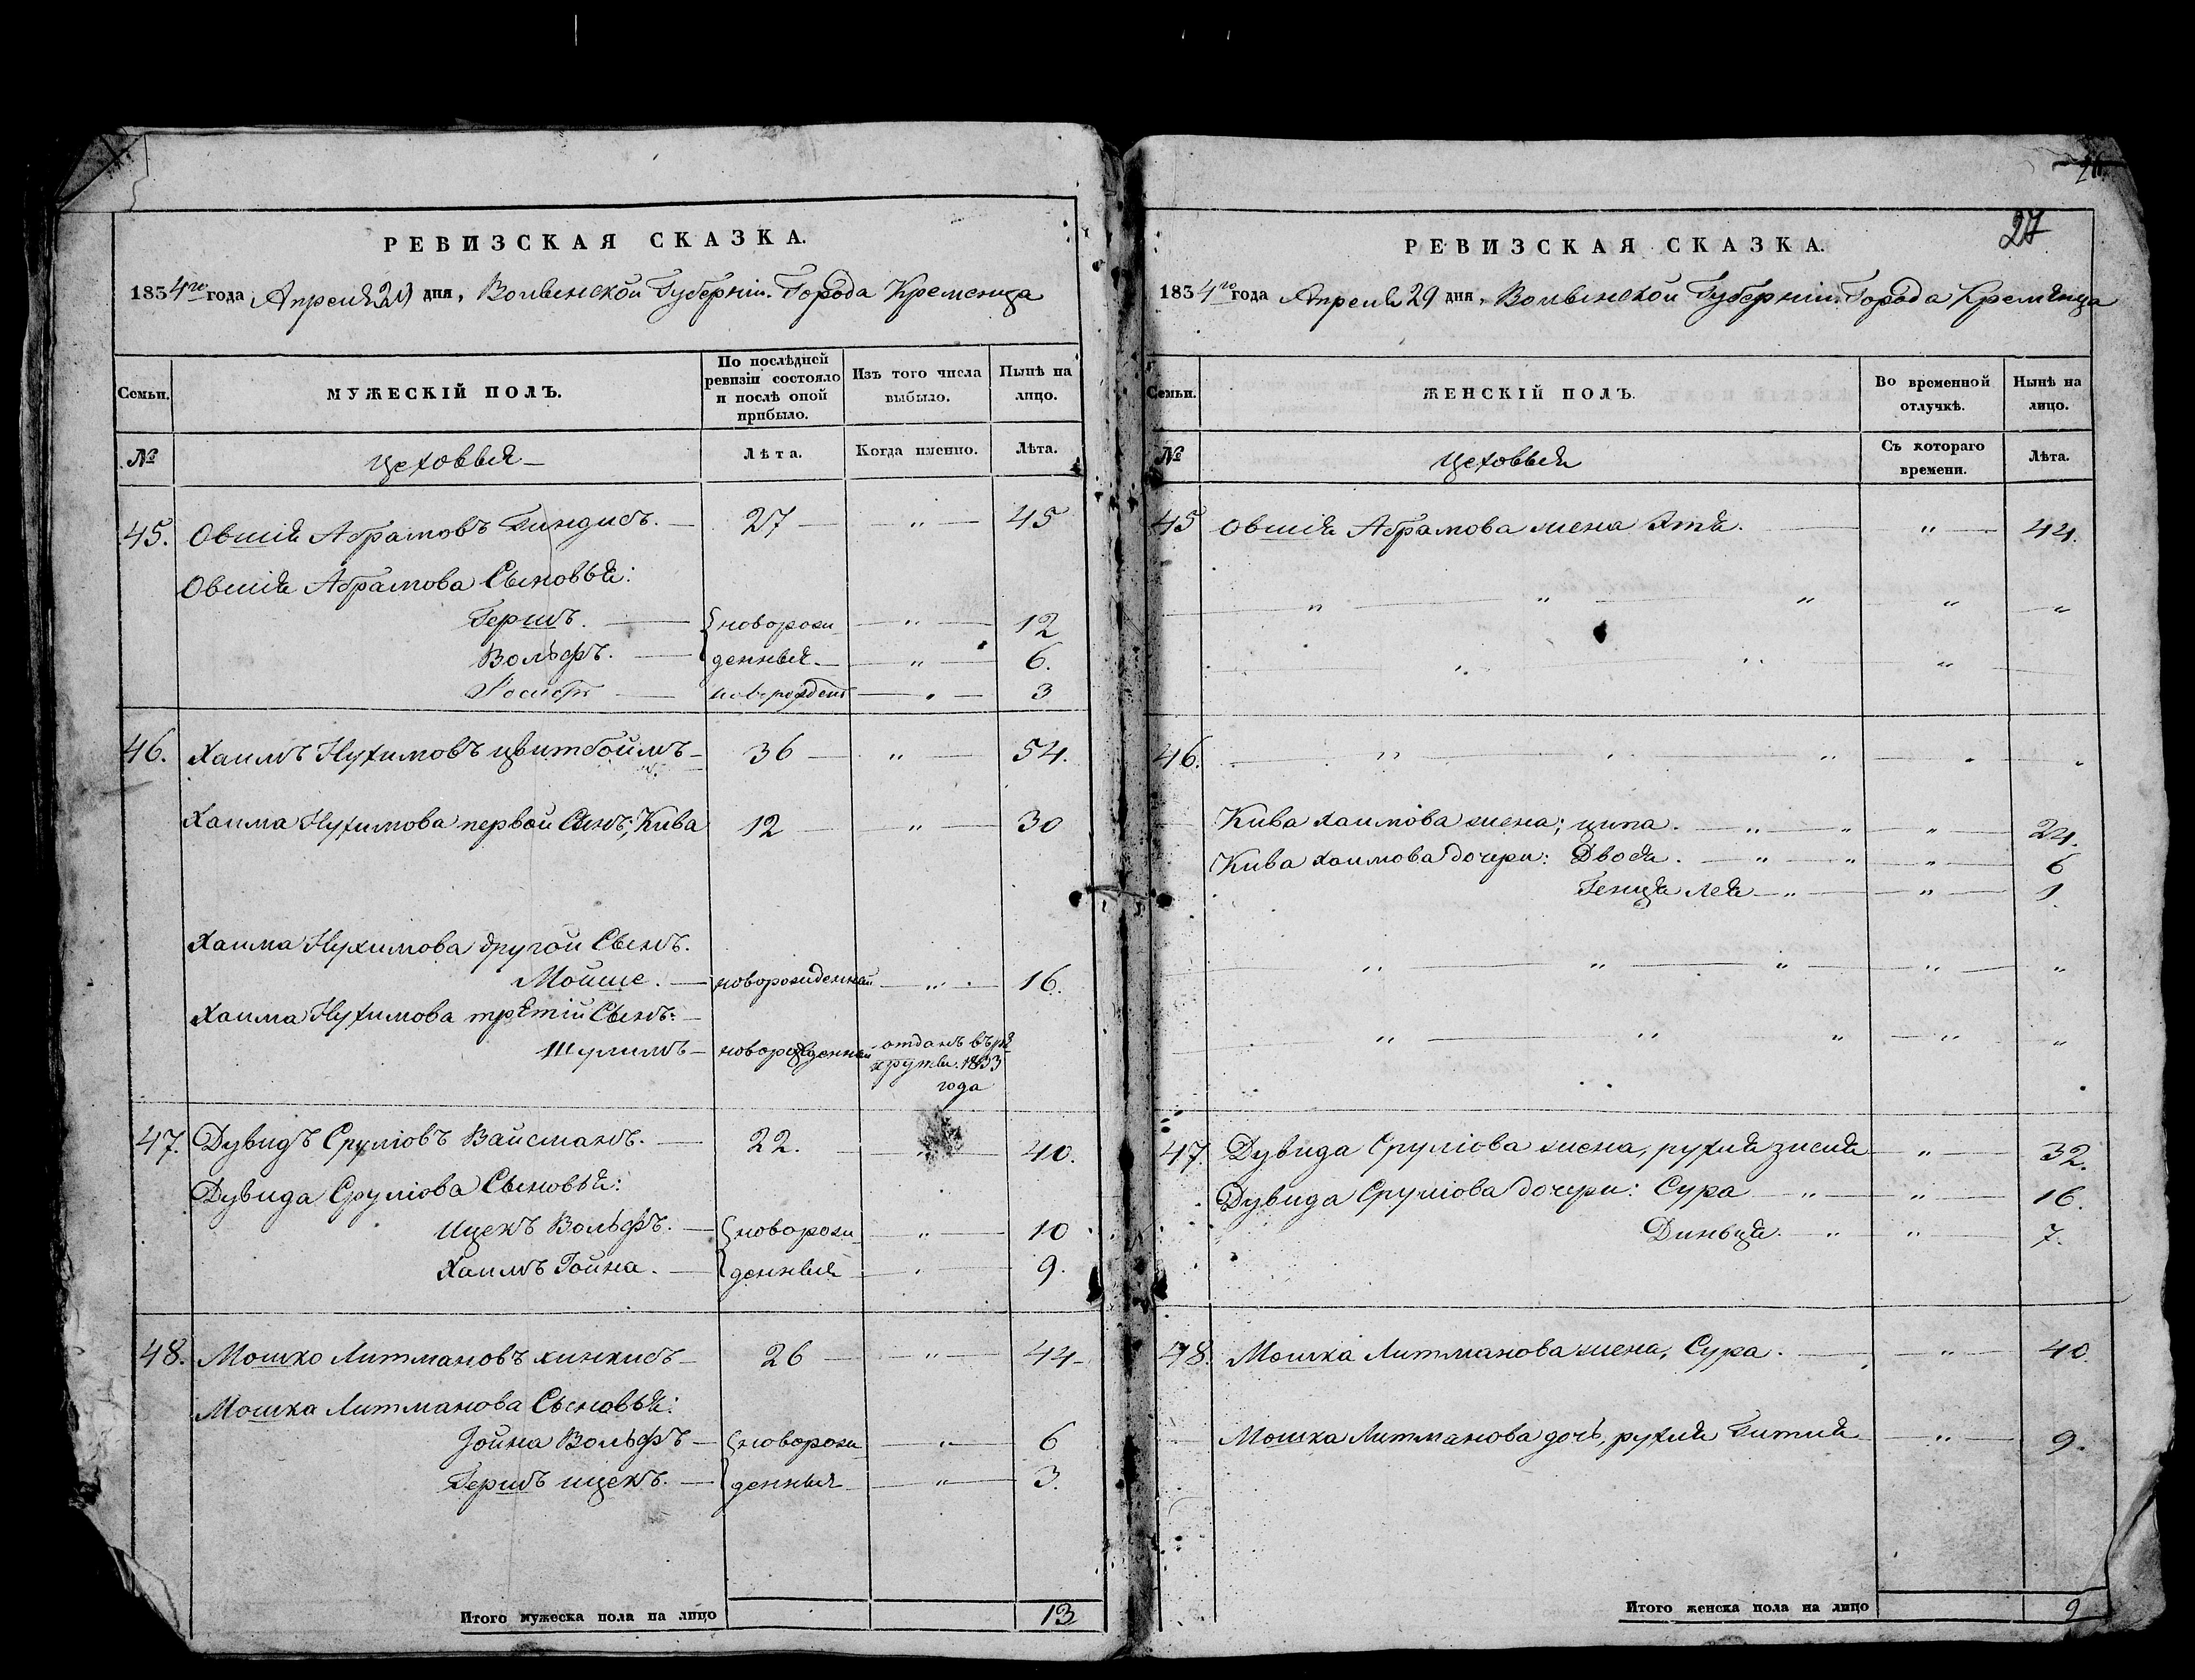 27
РЕВИЗСКАЯ СКАЗКА.
1854го года Апреля 29 дня, Волынской Губерніи. Города Кременца
Семьи.
МУЖЕСКІЙ ПОЛЪ.
По послѣдней ревизіи состояло и послѣ оной прибыло.
Изъ того числа выбыло.
Нынѣ на лицо.
№
Цеховыя
Лѣта.
Когда именно.
Лѣта.
45. Овшія Абрамовъ Гиндисъ. 27 " 45
Овшія Абрамова Сыновья:
Гершъ. новорож " 12
Вольфъ. денныя " 6.
новорожден 3
46. Хаимъ Нухимовъ Цвитбоймъ 36 " 54.
Хаима Нухимова первой Сынъ; Кива 12 " 30
Хаима Нухимова другой Сынъ.
Мойше. новорожденной " 16.
Хаима Нухимова третій Сынъ:
Шулимъ новорожденной отданъ въ ре
круты. 1853
года
47. Дувидъ Сруліовъ Вайсманъ. 22. 40.
Дувида Сруліова Сыновья:
Ицекъ Вольфъ. новорож " 10
Хаимъ Гойна. денныя " 9.
48. Мошко Литмановъ Хинкисъ 26 " 44
Мошка Литманова Сыновья:
Іойна Вольфъ новорож " 6
Гершъ Ицекъ. денныя " 3.
Итого мужеска пола на лицо 13
РЕВИЗСКАЯ СКАЗКА.
1854го года Апреля 29 дня, Волынской Губерніи. Города Кремянца
Семьи.
ЖЕНСКІЙ ПОЛЪ.
Во временной отлучкѣ.
Нынѣ на лицо.
№
Цеховыя
Съ котораго времени.
Лѣта.
45 Овшія Абрамова жена Этя. " 44.
" " " " "
46. " " "
Кива Хаимова жена; Ципа. " " " 24.
Кива Хаимова дочери: Двося. " " " 6
Генця Лея " " 1
" " " " "
" " " " "
47. Дувида Сруліова жена, Рухля Зисля " 32.
Дувида Сруліова дочери: Сура " " 16.
Диньця. " " 7.
48. Мошка Литманова жена, Сура. " 40.
Мошка Литманова дочь, Рухля Гитля " 9.
Итого женска пола на лицо 9